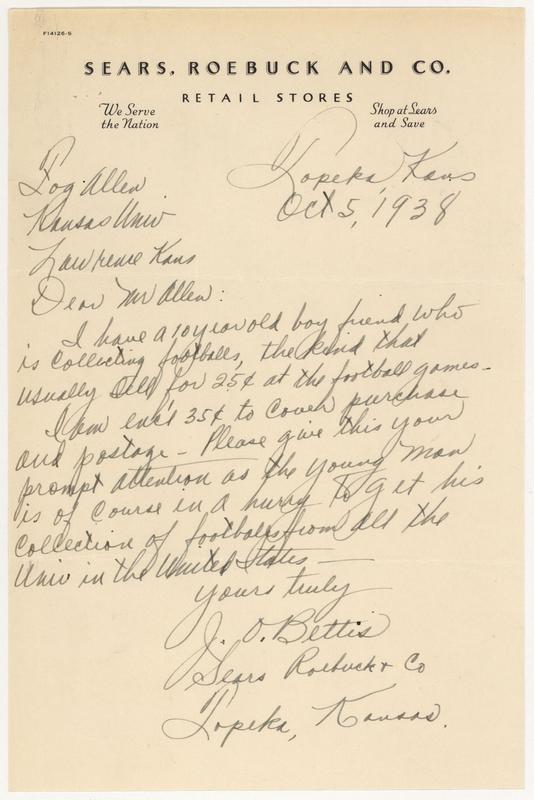 F14126-S
SEARS, ROEBUCK AND CO.
RETAIL STORES
We Serve
the Nation
Shop at Sears
and Save
Topeka, Kans
Oct 5, 1938
Fog Allen
Kansas Univ
Lawrence Kans
Dear Mr Allen:
I have a 10 year old boy friend who
is collecting footballs, the kind that
usually sell for 25¢ at the football games-
I am encl 35¢ to cover purchase
and postage - Please give this your
prompt attention as the young man
is of course in a hurry to get his
collection of footballs from all the
Univ in the United States -
Yours truly
J. O. Bettis
Sears Roebuck & Co
Topeka, Kansas.